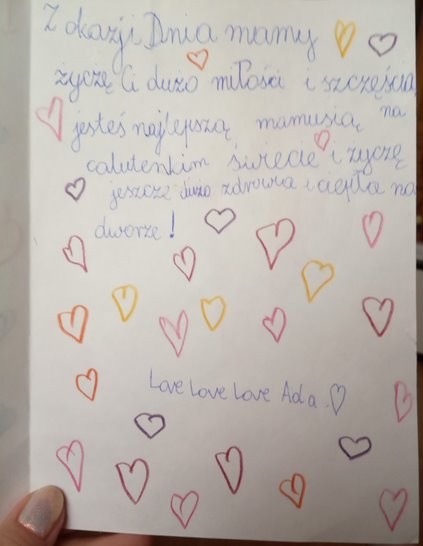 Z okazji Dnia mamy
życzę Ci dużo miłości i szczęścia
jesteś najlepszą mamusią na
calutenkim świecie i życzę
jeszcze dużo zdrowia i ciepła na
dworze!
Love Love Love Ada.